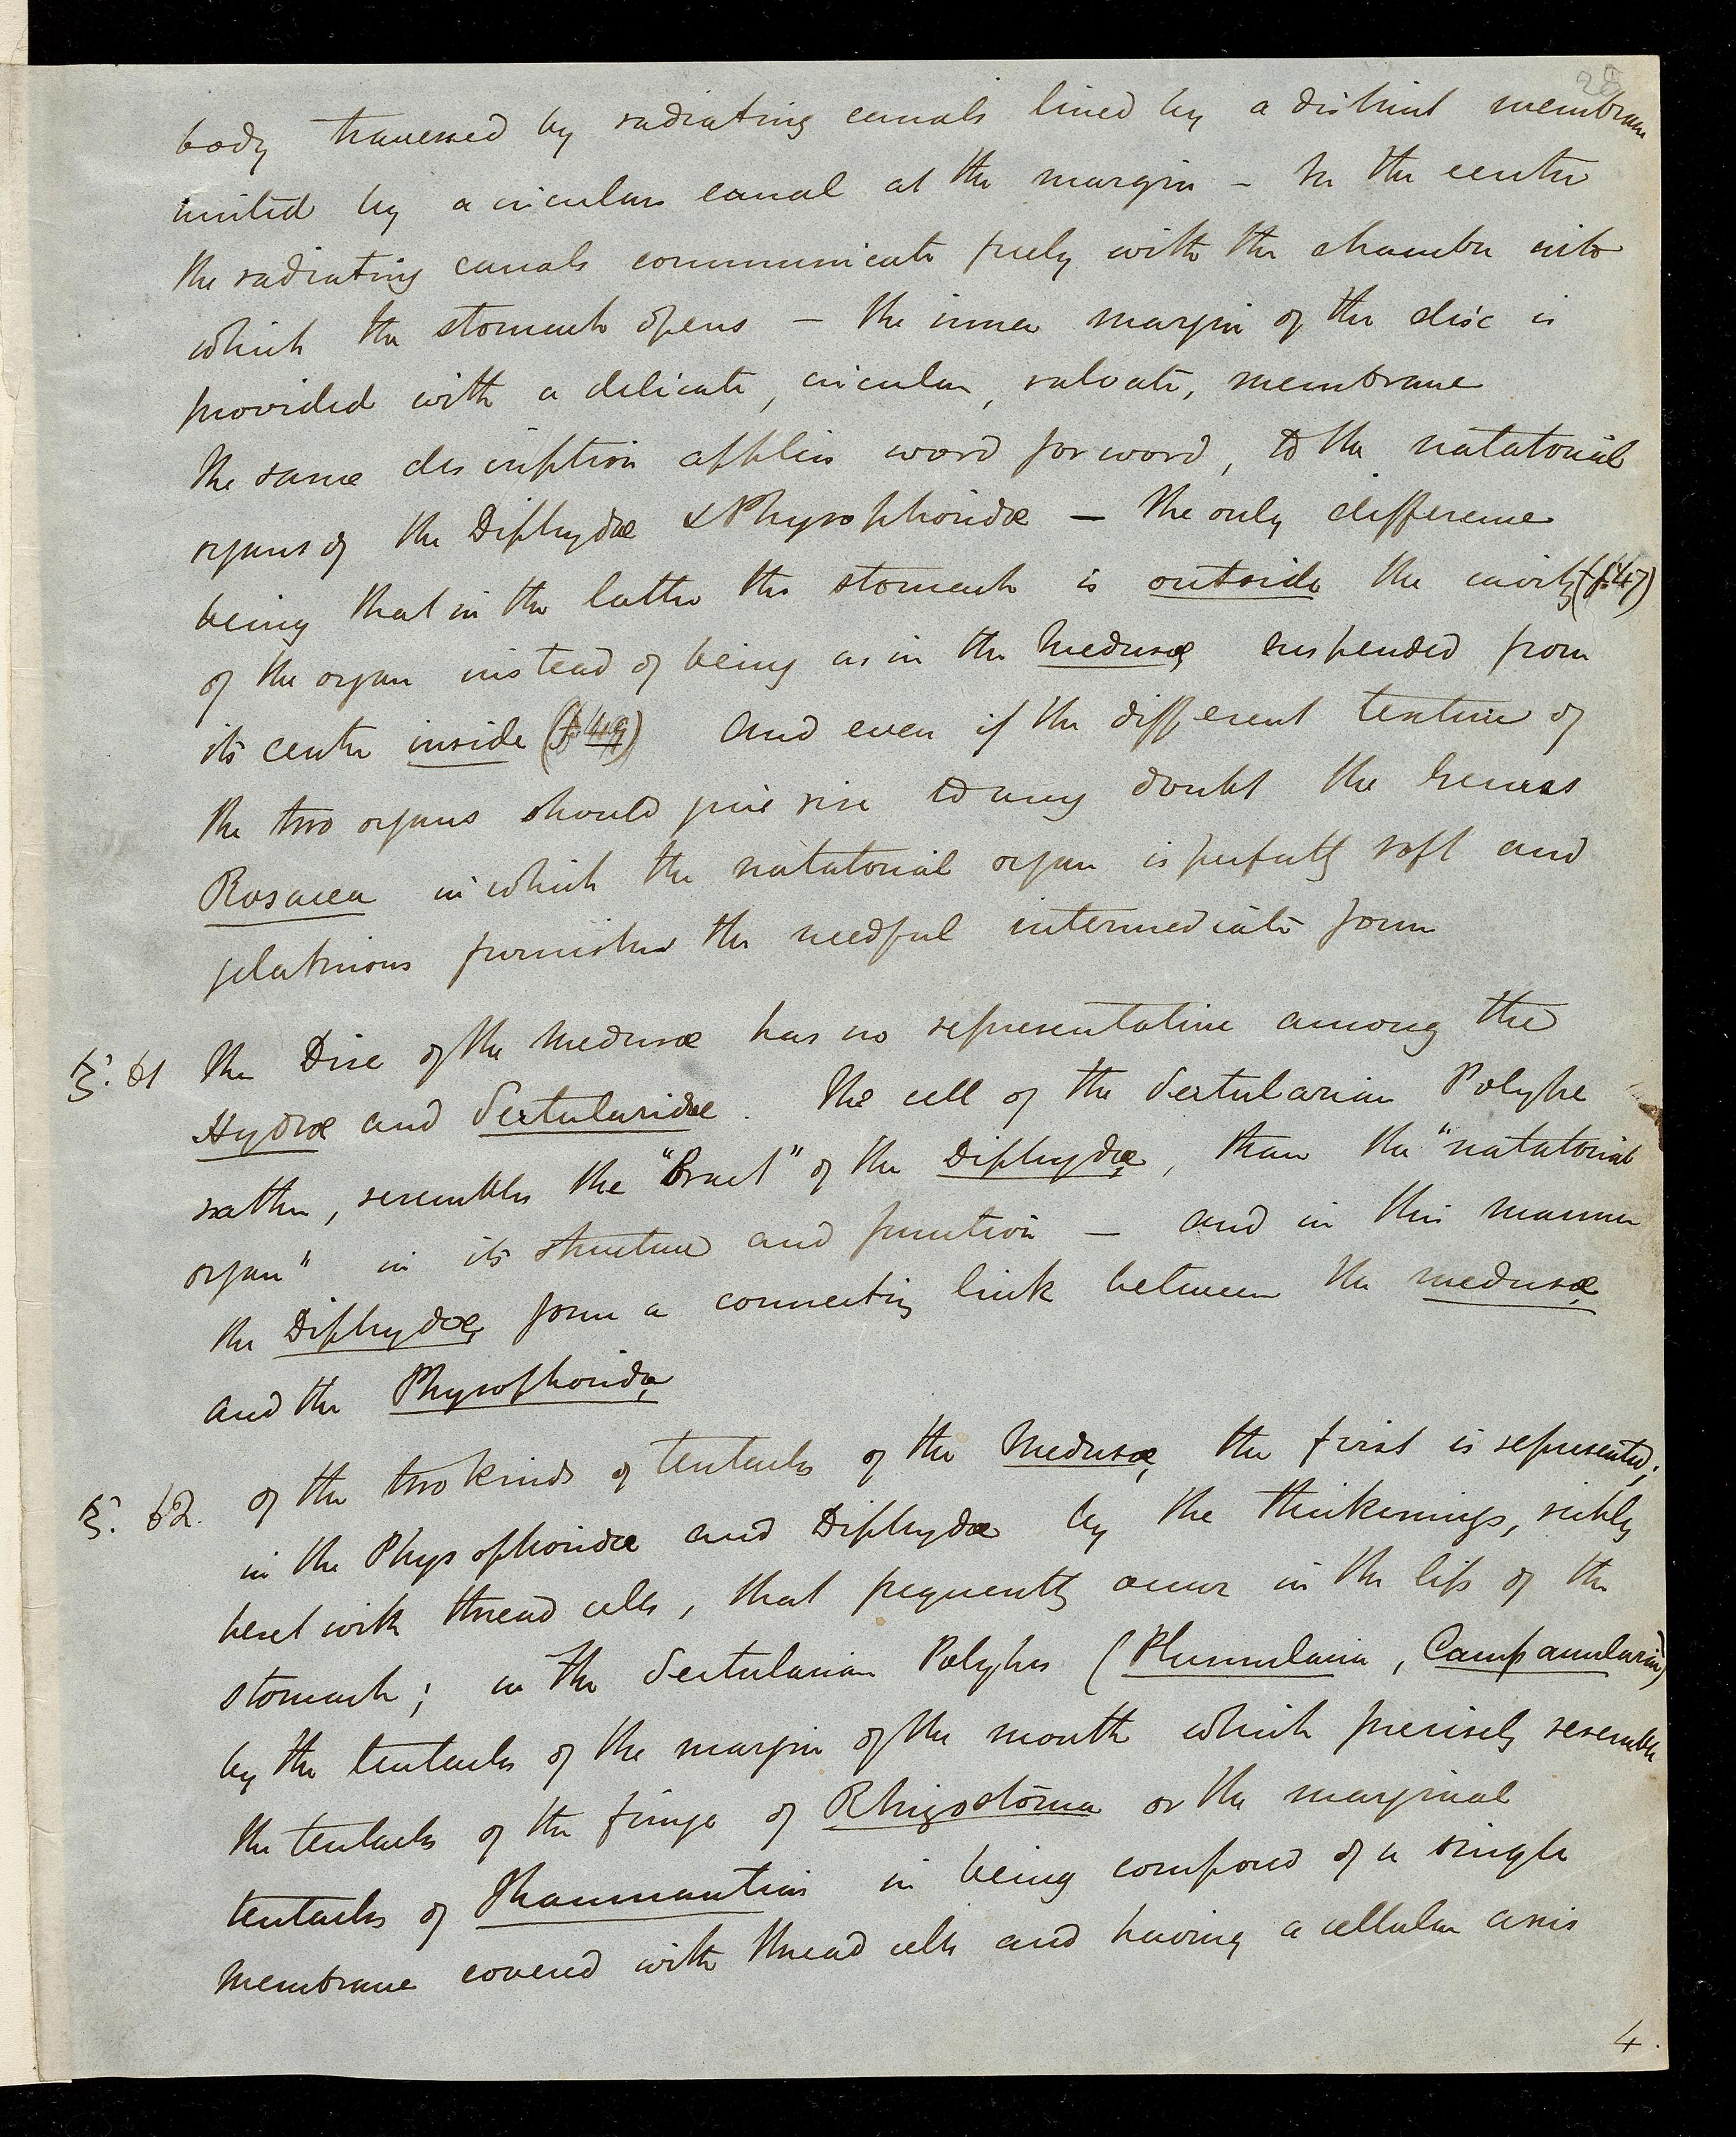 28
body traversed by radiating canals lined by a distinct membrane
united by a circular canal at the margin – In the centre
the radiating canals communicate freely with the chamber into
which the stomach opens – the inner margin of the disc is
provided with a delicate, circular, valvate, membrane
The same description applies word for word, to the natatorial
organs of the Diphydæ & Physophoridæ – The only difference
being that in the latter the stomach is outside the cavity (f. 47)
of the organ instead of being as in the Medusæ suspended from
its centre inside (f 49) And even if the different texture of
the two organs should give rise to any doubt the genus
Rosacea in which the natatorial organ is perfectly soft and
gelatinous furnishes the needful intermediate form
§. 61 The Disc of the Medusæ has no representative among the
Hydræ and Sertularidæ. The cell of the Sertularian Polype
rather, resembles the "Bract" of the Diphydæ, than the "natatorial
organ" in its structure and function – and in this manner
the Diphydæ form a connecting link between the medusæ
and the Physophoridæ
§. 62. Of the two kinds of tentacles of the Medusæ the first is represented;
in the Physophoridæ and Diphydæ by the thickenings, richly
beset with thread cells, that frequently occur in the lips of the
stomach; in the Sertularian Polypes (Plumularia, Campanularia)
by the tentacles of the margin of the mouth which precisely resemble
the tentacles of the fringe of Rhizostoma or the marginal
tentacles of Thaumantias in being composed of a single
membrane covered with thread cells and having a cellular axis
4.